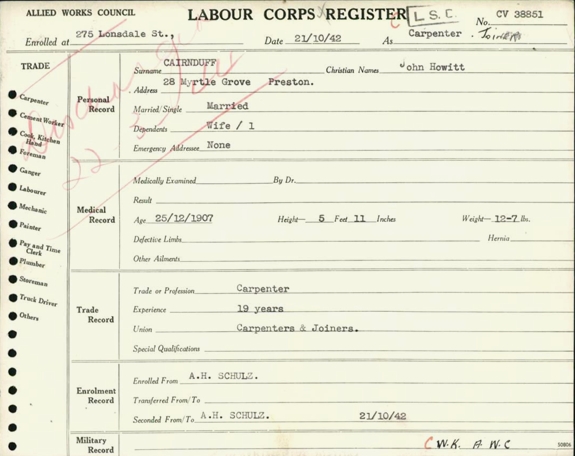 ALLIED WORKS COUNCIL LABOUR CORPS REGISTER L S C No. CV 38851
Enrolled at 275 Lonsdale St., Date 21/10/42 As Carpenter
TRADE
Carpenter
Cement Worker
Cook, Kitchen Hand
Foreman
Ganger
Labourer
Mechanic
Painter
Pay and Time Clerk
Plumber
Storeman
Truck Driver
Others
Personal Record
Surname CAIRNDUFF Christian Names John Howitt
Address 28 Myrtle Grove Preston.
Married/Single Married
Dependents Wife / 1
Emergency Addressee None
Medical Record
Medically Examined By Dr.
Result
Age 25/12/1907 Height— 5 Feet 11 Inches Weight— 12-7 lbs.
Defective Limbs Hernia
Other Ailments
Trade Record
Trade or Profession Carpenter
Experience 19 years
Union Carpenters & Joiners.
Special Qualifications
Enrolment Record
Enrolled From A.H. SCHULZ.
Transferred From/To
Seconded From/To A.H. SCHULZ. 21/10/42
Military Record
C W.K. A W C